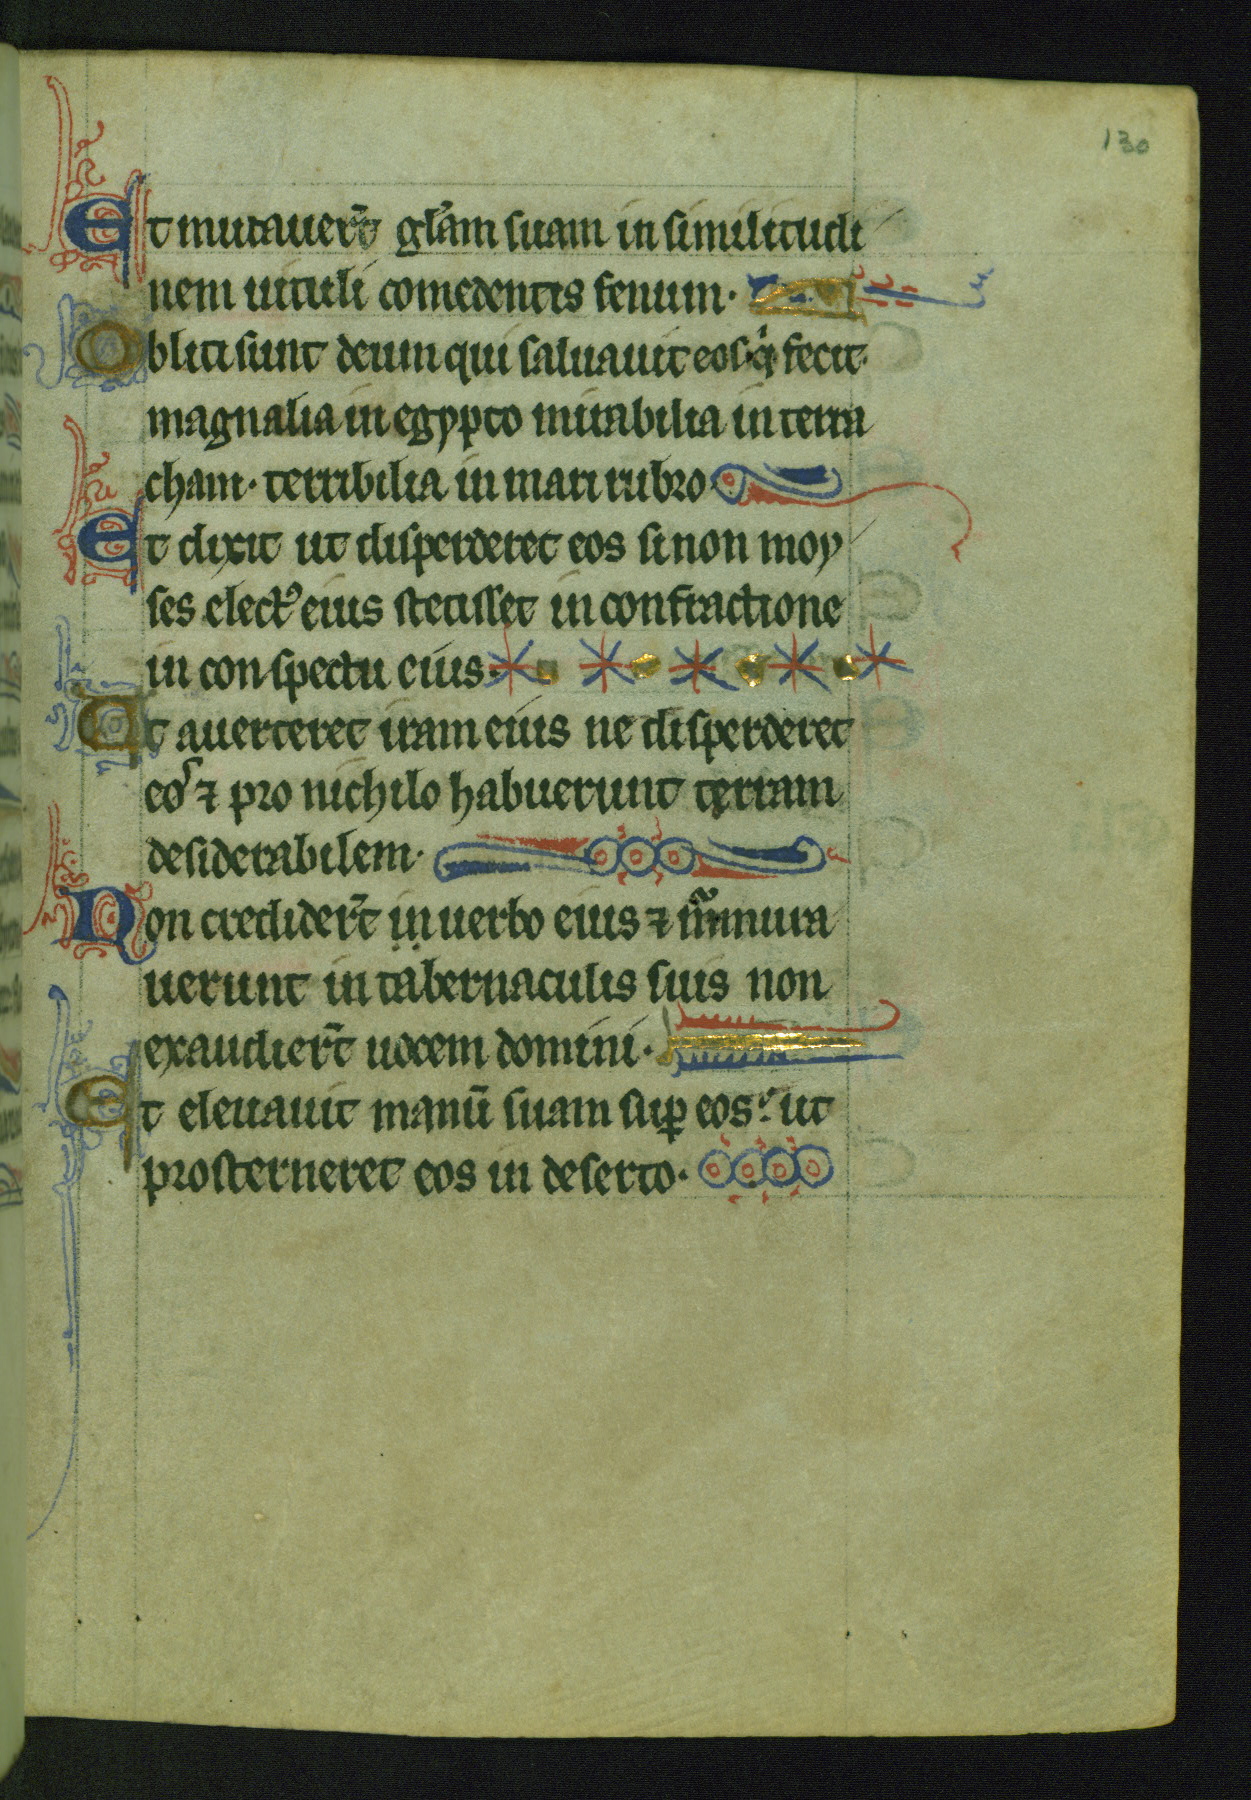 130
Et mutauer̄t gl̄am suam in similitudi
nem uituli comedentis fenum·
Obliti sunt deum qui saluauit eos· qͥ fecit
magnalia in egypto mirabilia in terra
cham· terribilia in mari rubro
Et dixit ut disperderet eos si non moy
ses elect᷒ eius stetisset in confractione
in conspectu eius·
Ut auerteret iram eius ne disperderet
eoˢ ⁊ pro nichilo habuerunt terram
desiderabilem·
Non credider̄t in uerbo eius ⁊ m̄mura
uerunt in tabernaculis suis non
exaudier̄t uocem domini·
Et eleuauit manū suam suꝑ eos· ut
prosterneret eos in deserto·